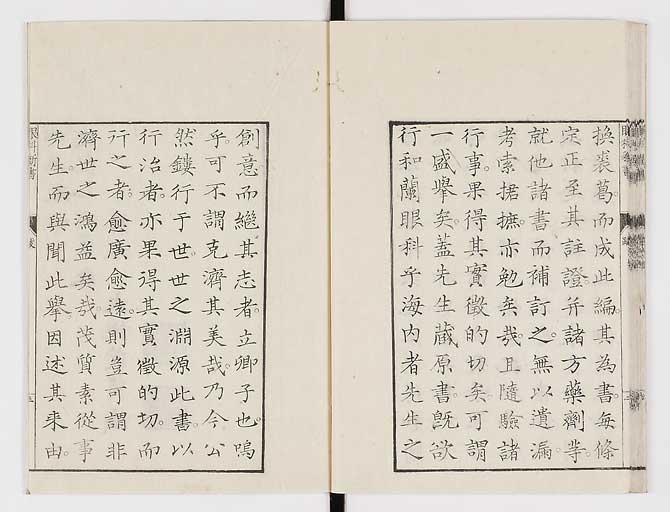 換裘葛而成此編。其為書每條
定正至其註證幷諸方藥劑等。
就他諸書而補訂之。無以遺漏。
考索據摭。亦勉矣哉。且隨驗諸
行事。果得其實徵的切矣。可謂
一盛擧矣。蓋先生蔵原書。既欲
行和蘭眼科乎海內者先生之
創意而繼其志者。立卿子也。嗚
乎。可不謂克濟其美哉。乃今公
然鏤行于世。世之淵源此書以
行治者。亦果得其實徵的切。而
行之者。愈廣愈遠。則豈可謂非
濟世之鴻益矣哉。茂質素從事
先生。而與聞此擧。因述其来由。
眼科新書
跋
五